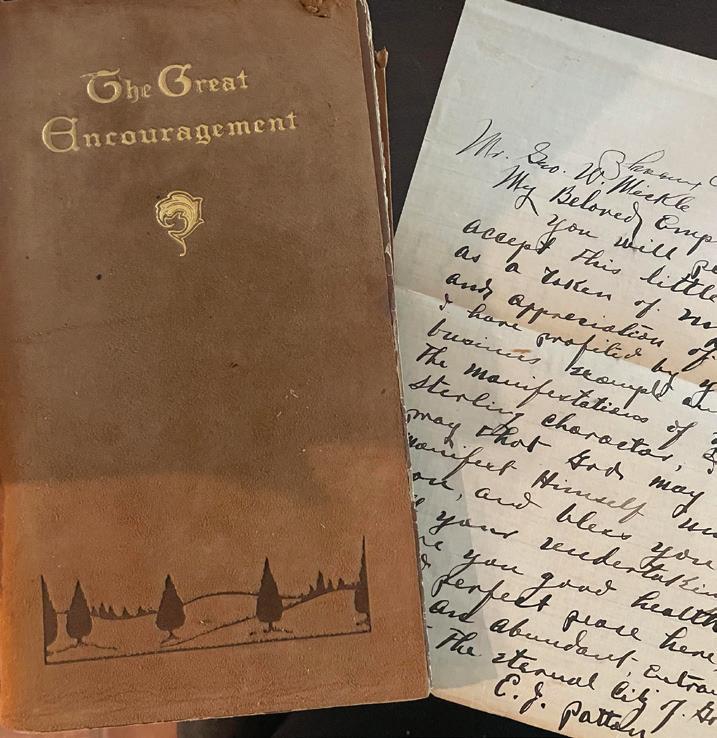 The Great
Encouragement
Mr. Geo. W. Mickle
My Beloved Emp
You will pe
accept this little
as a token of m
and appreciation of
I have profited by y
business example an
The manifestations of
sterling character,
may that God may
manifest Himself
on, and bless you
your undertakin
you good health
perfect peace here
an abundant, entran
The eternal City of Go
E. J. Patton